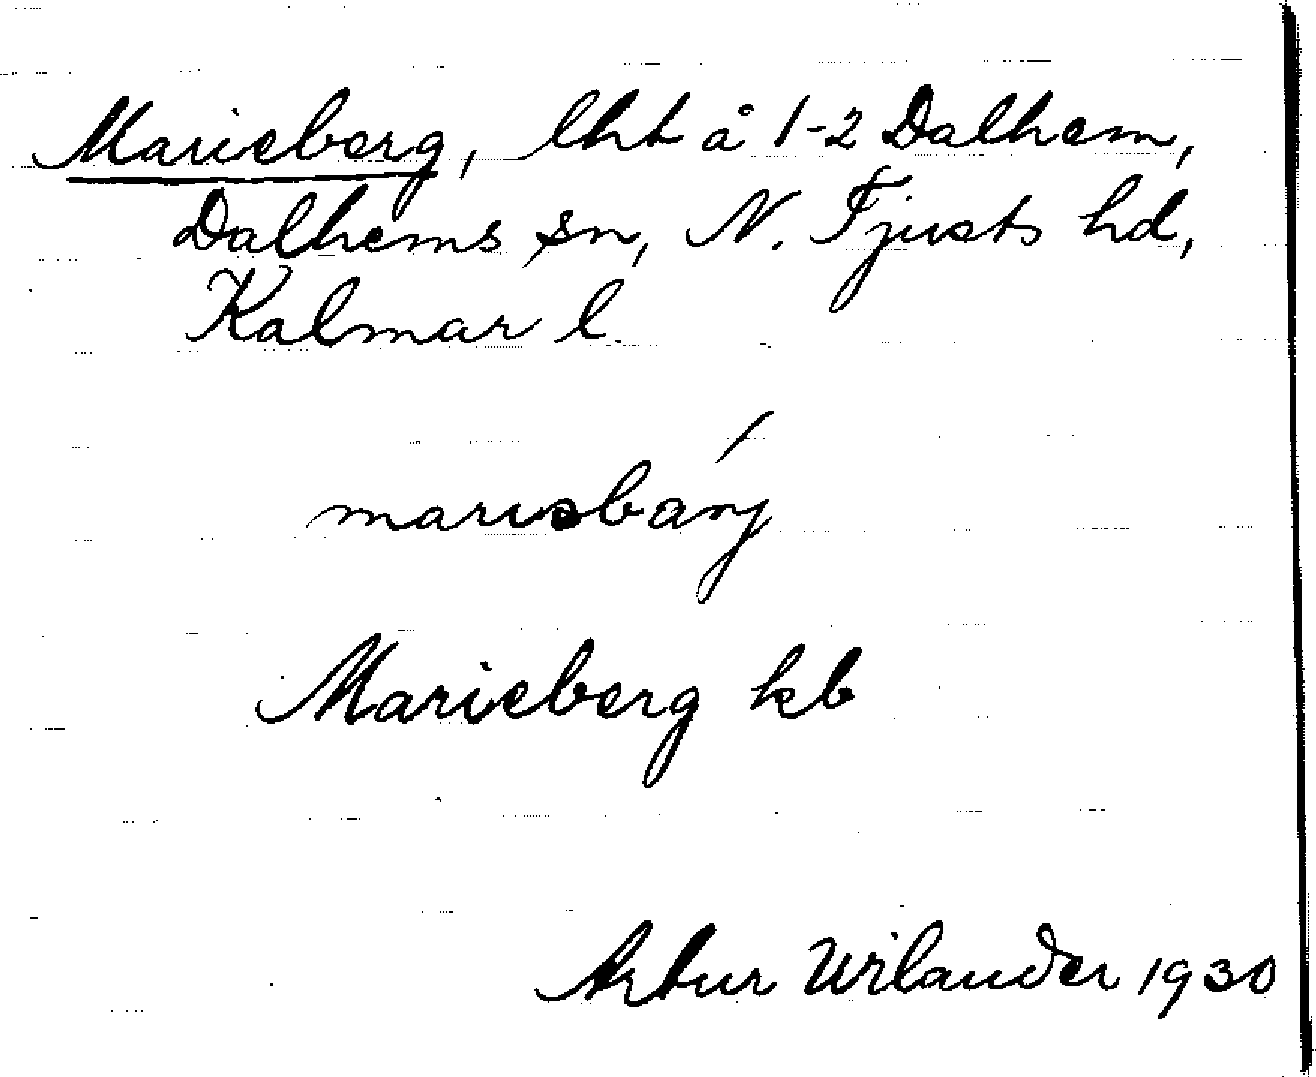 Marieberg, lht å 1-2 Dalhem,
Dalhems sn, N. Tjusts hd,
Kalmar l.
marisbárj
Marieberg kb
Artur Wilander 1930